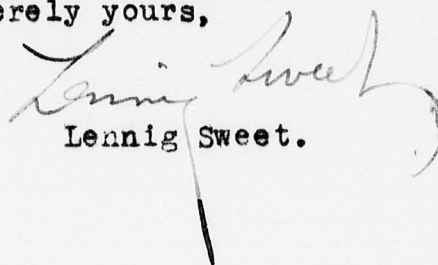 erely yours,
Lennig Sweet
Lennig Sweet.